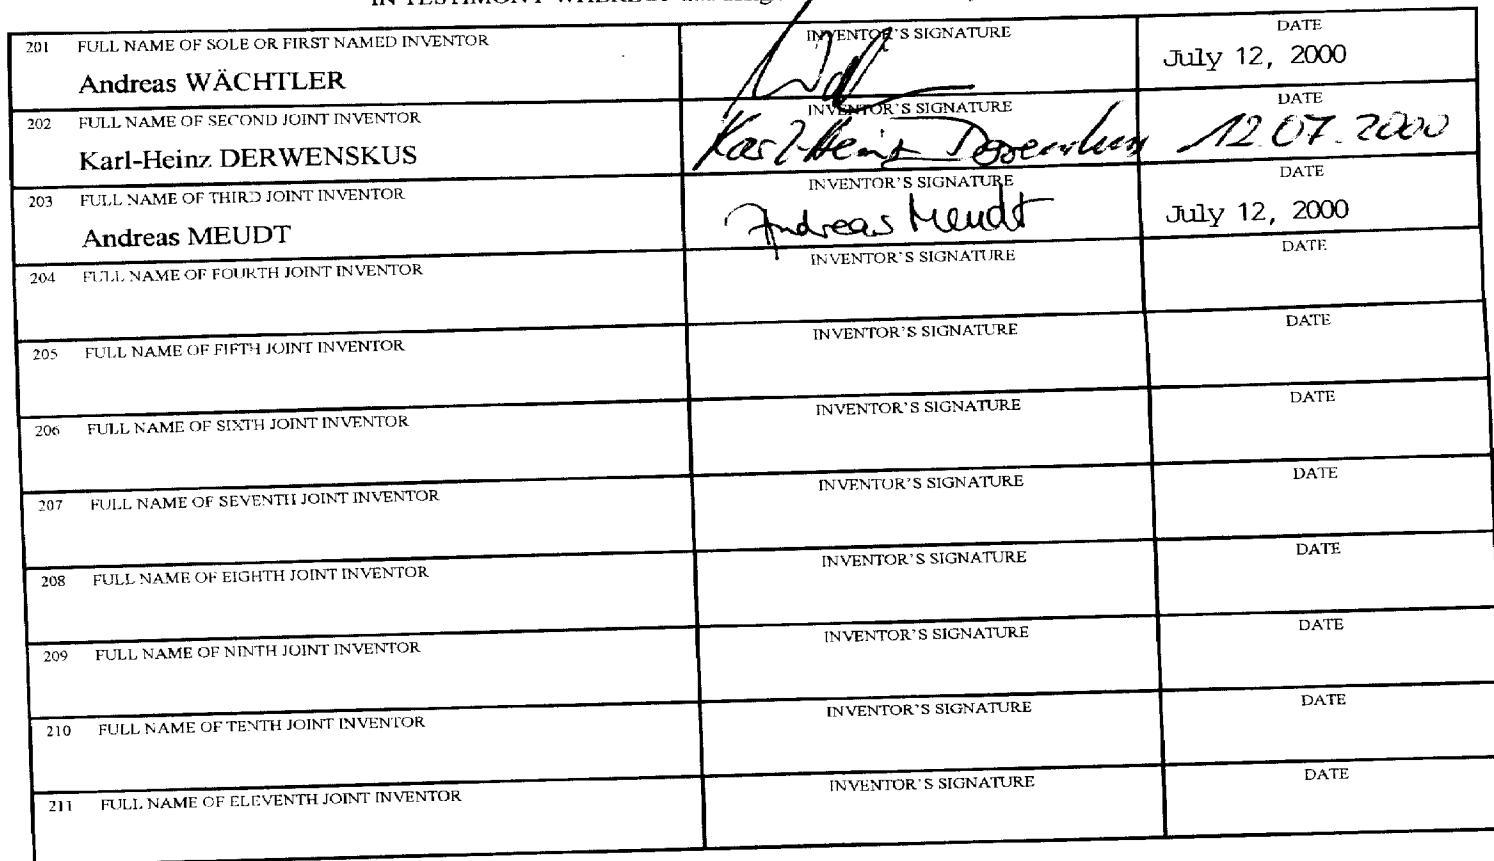 IN TESTIMONY WHEREOF
201 FULL NAME OF SOLE OR FIRST NAMED INVENTOR INVENTOR'S SIGNATURE DATE
Andreas WÄCHTLER July 12, 2000
202 FULL NAME OF SECOND JOINT INVENTOR INVENTOR'S SIGNATURE DATE
Karl-Heinz DERWENSKUS Karl-Heinz Derwenskus 12.07.2000
203 FULL NAME OF THIRD JOINT INVENTOR INVENTOR'S SIGNATURE DATE
Andreas MEUDT Andreas Meudt July 12, 2000
204 FULL NAME OF FOURTH JOINT INVENTOR INVENTOR'S SIGNATURE DATE
205 FULL NAME OF FIFTH JOINT INVENTOR INVENTOR'S SIGNATURE DATE
206 FULL NAME OF SIXTH JOINT INVENTOR INVENTOR'S SIGNATURE DATE
207 FULL NAME OF SEVENTH JOINT INVENTOR INVENTOR'S SIGNATURE DATE
208 FULL NAME OF EIGHTH JOINT INVENTOR INVENTOR'S SIGNATURE DATE
209 FULL NAME OF NINTH JOINT INVENTOR INVENTOR'S SIGNATURE DATE
210 FULL NAME OF TENTH JOINT INVENTOR INVENTOR'S SIGNATURE DATE
211 FULL NAME OF ELEVENTH JOINT INVENTOR INVENTOR'S SIGNATURE DATE